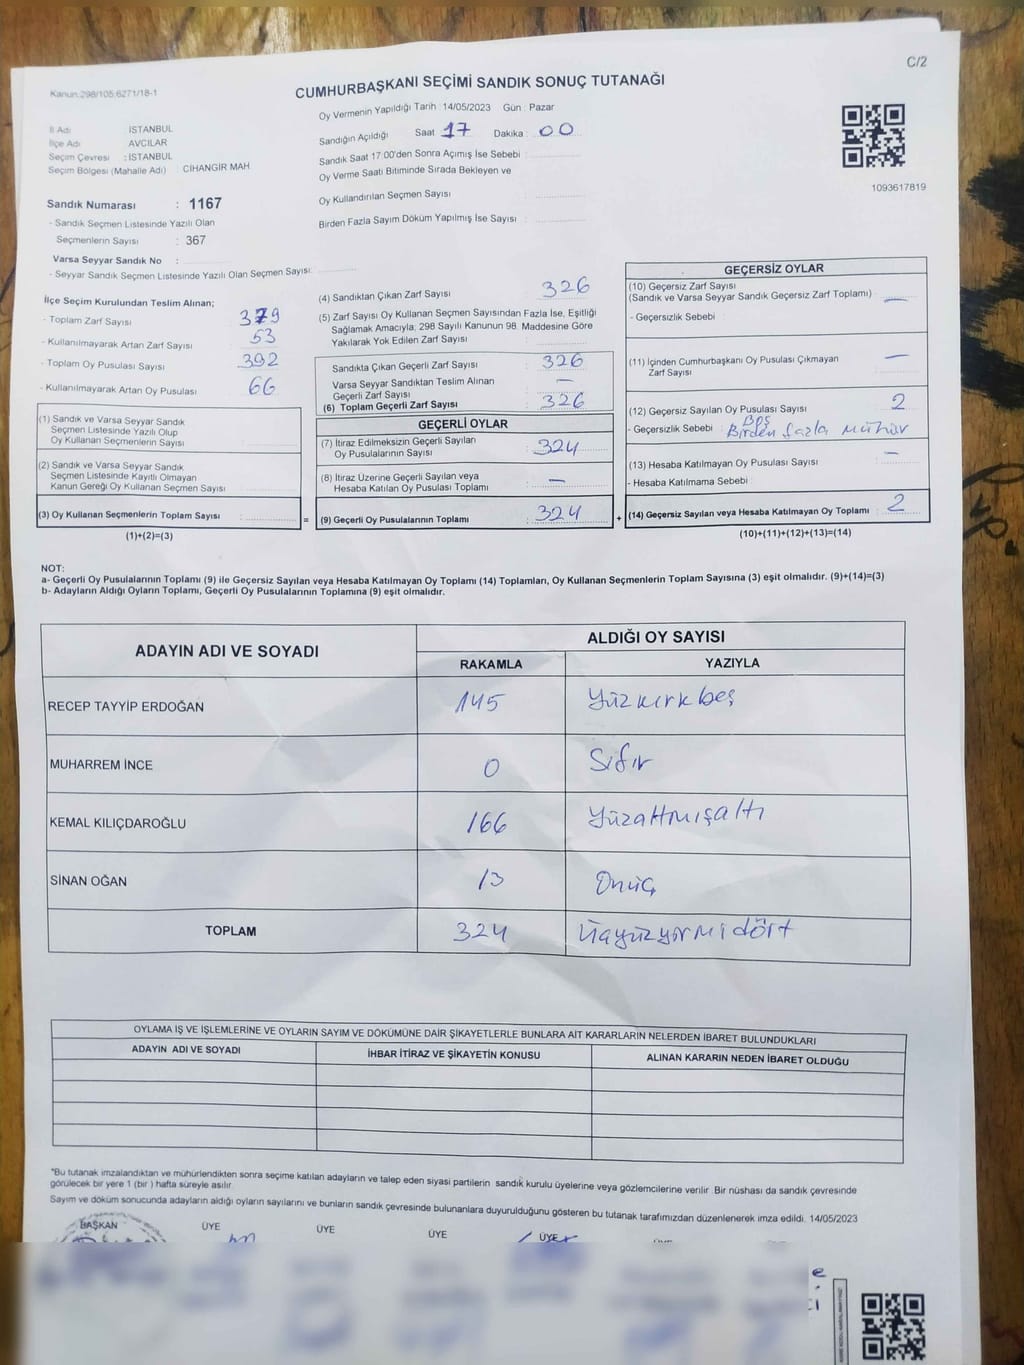 C/2
Kanun:298/105;6271/18-1
CUMHURBAŞKANI SEÇİMİ SANDIK SONUÇ TUTANAĞI
Oy Vermenin Yapıldığı Tarih : 14/05/2023 Gün : Pazar
İl Adı İSTANBUL
İlçe Adı AVCILAR
Seçim Çevresi : İSTANBUL
Seçim Bölgesi (Mahalle Adı) : CİHANGİR MAH
Sandığın Açıldığı Saat 17 Dakika : 00
Sandık Saat 17:00'den Sonra Açımış İse Sebebi :
Oy Verme Saati Bitiminde Sırada Bekleyen ve
Oy Kullandırılan Seçmen Sayısı :
Birden Fazla Sayım Döküm Yapılmış İse Sayısı :
1093617819
Sandık Numarası : 1167
- Sandık Seçmen Listesinde Yazılı Olan
Seçmenlerin Sayısı : 367
Varsa Seyyar Sandık No :
- Seyyar Sandık Seçmen Listesinde Yazılı Olan Seçmen Sayısı:
İlçe Seçim Kurulundan Teslim Alınan;
- Toplam Zarf Sayısı : 379
- Kullanılmayarak Artan Zarf Sayısı : 53
- Toplam Oy Pusulası Sayısı : 392
- Kullanılmayarak Artan Oy Pusulası : 66
(1) Sandık ve Varsa Seyyar Sandık
Seçmen Listesinde Yazılı Olup
Oy Kullanan Seçmenlerin Sayısı :
(2) Sandık ve Varsa Seyyar Sandık
Seçmen Listesinde Kayıtlı Olmayan
Kanun Gereği Oy Kullanan Seçmen Sayısı :
(3) Oy Kullanan Seçmenlerin Toplam Sayısı :
(1)+(2)=(3)
=
(4) Sandıktan Çıkan Zarf Sayısı : 326
(5) Zarf Sayısı Oy Kullanan Seçmen Sayısından Fazla İse, Eşitliği
Sağlamak Amacıyla; 298 Sayılı Kanunun 98. Maddesine Göre
Yakılarak Yok Edilen Zarf Sayısı :
Sandıkta Çıkan Geçerli Zarf Sayısı : 326
Varsa Seyyar Sandıktan Teslim Alınan
Geçerli Zarf Sayısı : —
(6) Toplam Geçerli Zarf Sayısı : 326
GEÇERLİ OYLAR
(7) İtiraz Edilmeksizin Geçerli Sayılan
Oy Pusulalarının Sayısı : 324
(8) İtiraz Üzerine Geçerli Sayılan veya
Hesaba Katılan Oy Pusulası Toplamı : —
(9) Geçerli Oy Pusulalarının Toplamı : 324
+
GEÇERSİZ OYLAR
(10) Geçersiz Zarf Sayısı
(Sandık ve Varsa Seyyar Sandık Geçersiz Zarf Toplamı) : —
- Geçersizlik Sebebi :
(11) İçinden Cumhurbaşkanı Oy Pusulası Çıkmayan
Zarf Sayısı : —
(12) Geçersiz Sayılan Oy Pusulası Sayısı : 2
- Geçersizlik Sebebi : Birden fazla mühür
(13) Hesaba Katılmayan Oy Pusulası Sayısı : —
- Hesaba Katılmama Sebebi :
(14) Geçersiz Sayılan veya Hesaba Katılmayan Oy Toplamı : 2
(10)+(11)+(12)+(13)=(14)
NOT:
a- Geçerli Oy Pusulalarının Toplamı (9) ile Geçersiz Sayılan veya Hesaba Katılmayan Oy Toplamı (14) Toplamları, Oy Kullanan Seçmenlerin Toplam Sayısına (3) eşit olmalıdır. (9)+(14)=(3)
b- Adayların Aldığı Oyların Toplamı, Geçerli Oy Pusulalarının Toplamına (9) eşit olmalıdır.
ADAYIN ADI VE SOYADI ALDIĞI OY SAYISI
RAKAMLA YAZIYLA
RECEP TAYYİP ERDOĞAN 145 Yüzkırkbeş
MUHARREM İNCE 0 Sıfır
KEMAL KILIÇDAROĞLU 166 Yüzaltmışaltı
SİNAN OĞAN 13 Onüç
TOPLAM 324 Üçyüzyirmidört
OYLAMA İŞ VE İŞLEMLERİNE VE OYLARIN SAYIM VE DÖKÜMÜNE DAİR ŞİKAYETLERLE BUNLARA AİT KARARLARIN NELERDEN İBARET BULUNDUKLARI
ADAYIN ADI VE SOYADI İHBAR İTİRAZ VE ŞİKAYETİN KONUSU ALINAN KARARIN NEDEN İBARET OLDUĞU
*Bu tutanak imzalandıktan ve mühürlendikten sonra seçime katılan adayların ve talep eden siyasi partilerin sandık kurulu üyelerine veya gözlemcilerine verilir. Bir nüshası da sandık çevresinde
görülecek bir yere 1 (bir ) hafta süreyle asılır.
Sayım ve döküm sonucunda adayların aldığı oyların sayılarını ve bunların sandık çevresinde bulunanlara duyurulduğunu gösteren bu tutanak tarafımızdan düzenlenerek imza edildi. 14/05/2023
BAŞKAN ÜYE ÜYE ÜYE ÜYE